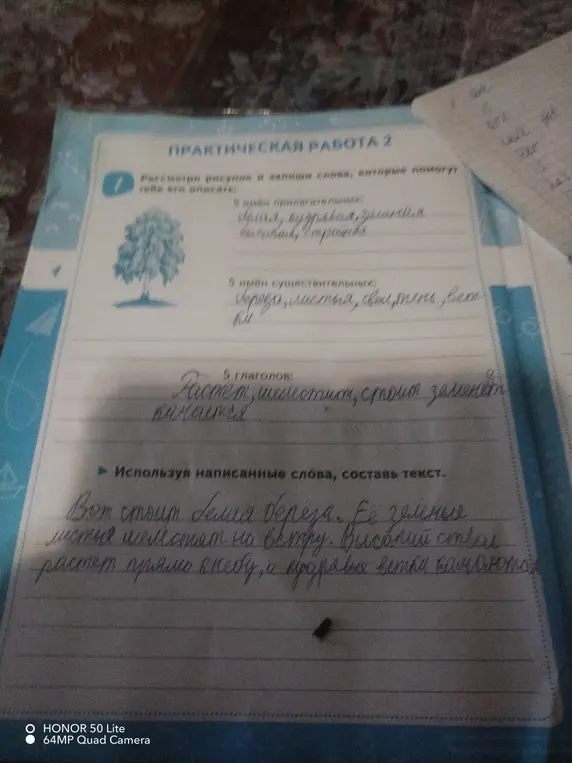 ПРАКТИЧЕСКАЯ РАБОТА 2
1 Рассмотри рисунок и запиши слова, которые помогут
тебе его описать:
5 имён прилагательных:
белая, кудрявая, зелёная
высокая, стройная
5 имён существительных:
береза, листья, ствол, тень, вет
ки
5 глаголов:
Растет, шелестит, стоит зеленеет
качается
Используя написанные слова, составь текст.
Вот стоит белая берёза. Её зелёные
листья шелестят на ветру. Высокий ствол
растет прямо к небу, а кудрявые ветки
HONOR 50 Lite
64MP Quad Camera